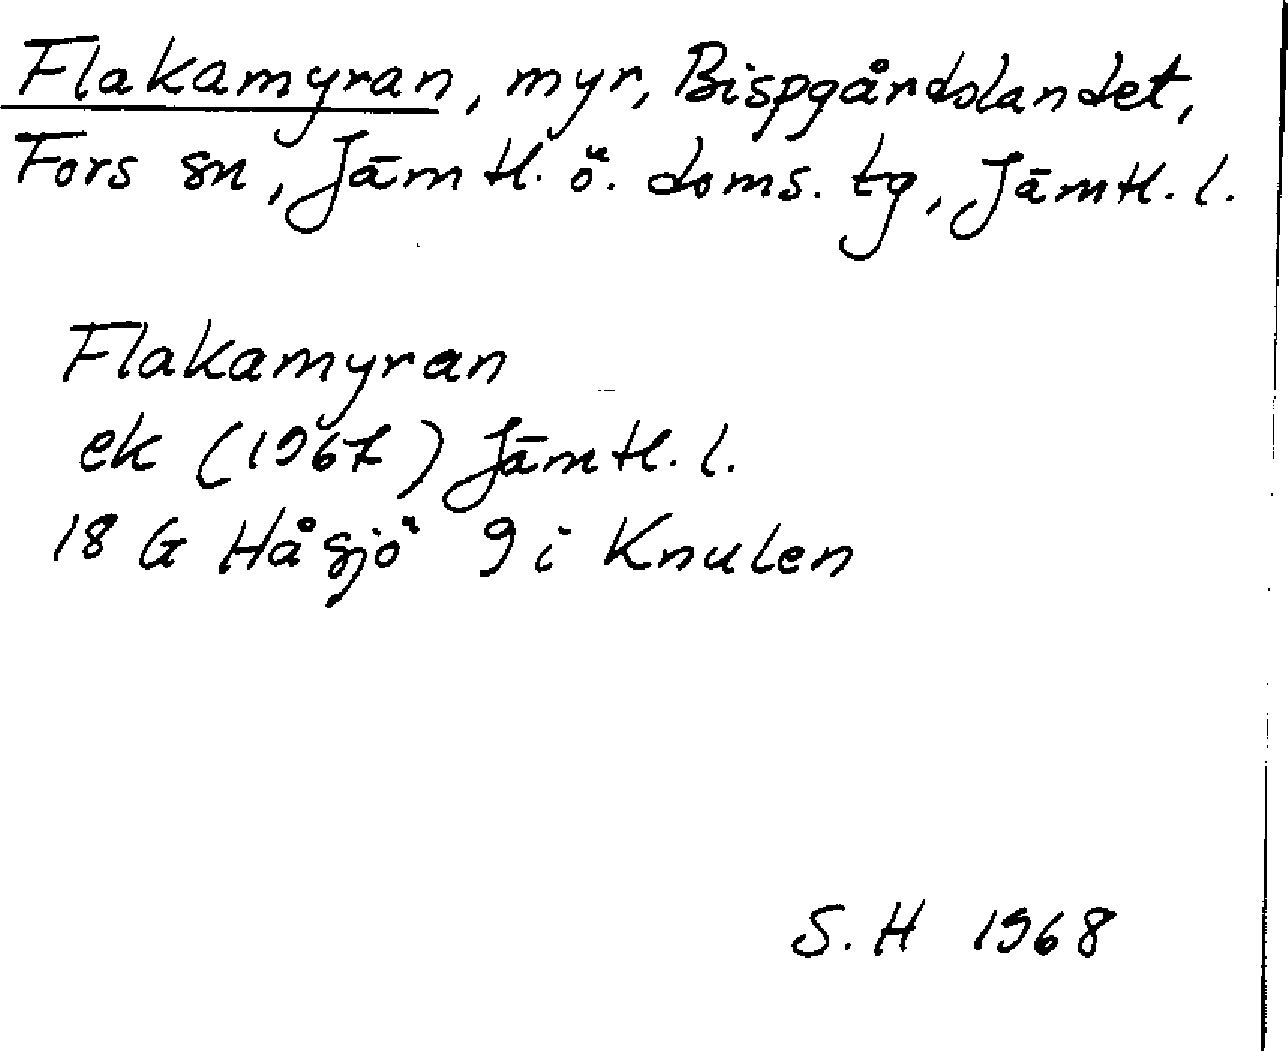 Flakamyran, myr, Bispgårdslandet,
Fors sn, Jämtl. ö. doms. tg, Jämtl. l.
Flakamyran
ek (1967) Jämtl. l.
18 G Håsjö 9 i Knulen
S. H 1968